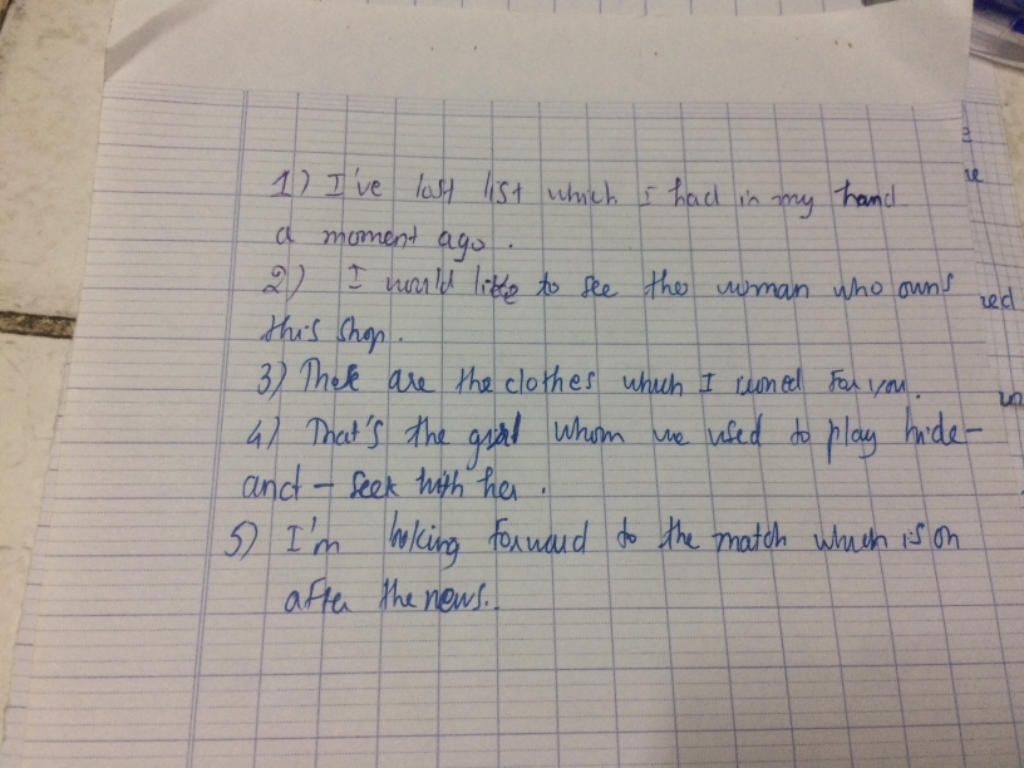 1) I've lost list which I had in my hand
a moment ago.
2) I would like to see the woman who owns
this shop.
3) These are the clothes which I ironed for you.
4) That's the girl whom we used to play hide-
and - seek with her.
5) I'm looking forward to the match which is on
after the news.
red